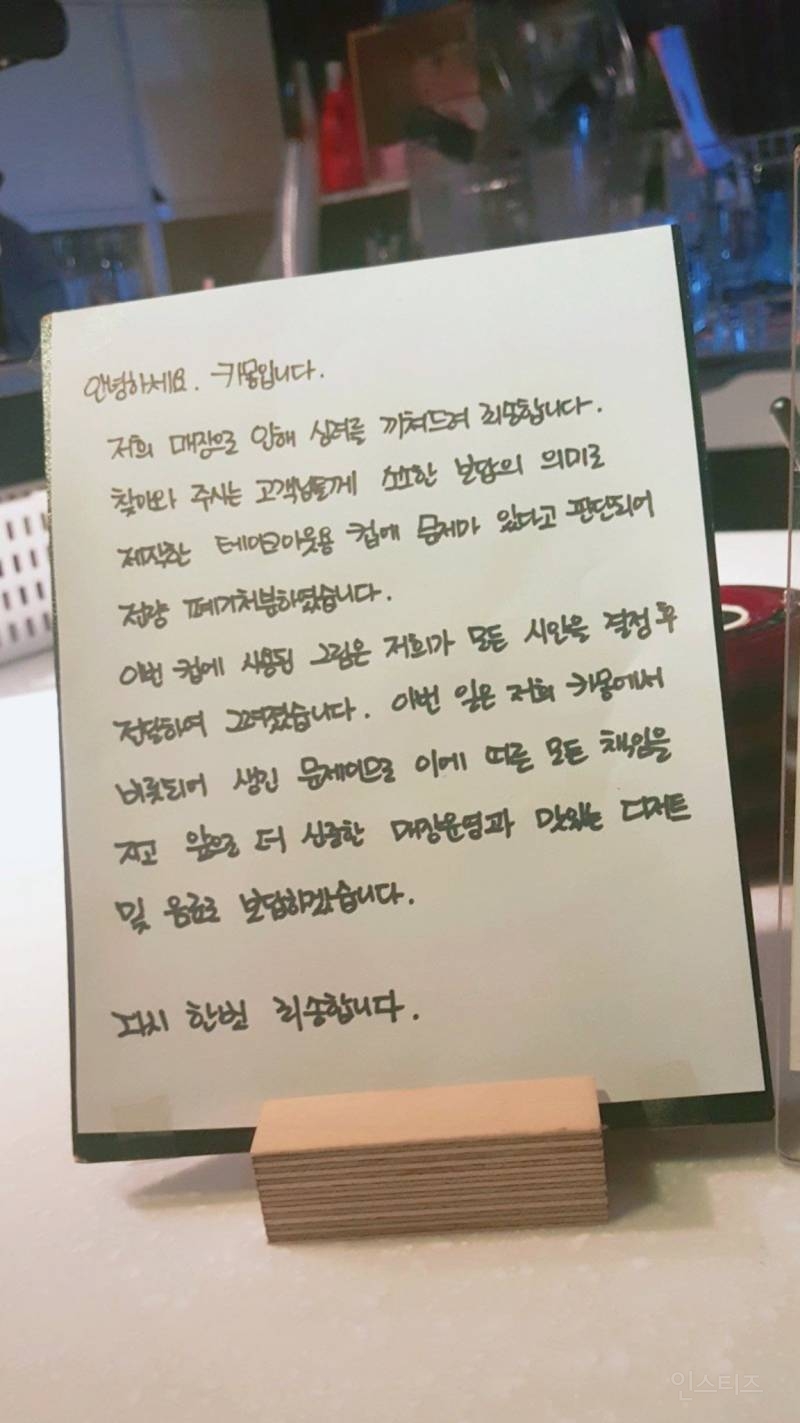 안녕하세요. 카몽입니다.
저희 매장으로 인해 심려를 끼쳐드려 죄송합니다.
찾아와 주시는 고객님들께 소소한 보답의 의미로
제작한 테이크아웃용 컵에 문제가 있다고 판단되어
전량 폐기처분하였습니다.
이번 컵에 사용된 그림은 저희가 모든 시안을 결정 후
전달하여 그려졌습니다. 이번 일은 저희 카몽에서
비롯되어 생긴 문제이므로 이에 따른 모든 책임을
지고 앞으로 더 신중한 매장운영과 맛있는 디저트
및 음료로 보답하겠습니다.
다시 한번 죄송합니다.
인스티즈